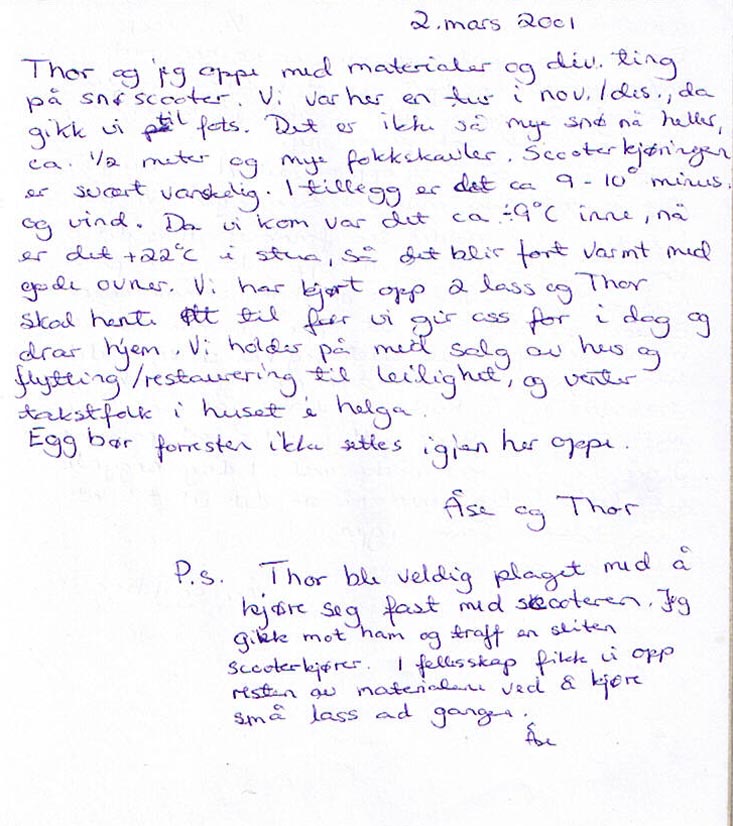 2. mars 2001
Thor og jeg oppe med materialer og div. ting
på snøscooter. Vi var her en tur i nov./des., da
gikk vi til fots. Det er ikke så mye snø nå heller,
ca. 1/2 meter og mye fokkskavler. Scooterkjøringen
er svært vanskelig. I tillegg er det ca 9-10° minus.
og vind. Da vi kom var det ca ÷9°C inne, nå
er det +22°C i stua, så det blir fort varmt med
gode ovner. Vi har kjørt opp 2 lass og Thor
skal hente ett til før vi gir oss for i dag og
drar hjem. Vi holder på med salg av hus og
flytting/restaurering til leilighet, og venter
takstfolk i huset i helga.
Egg bør forresten ikke settes igjen her oppe.
Åse og Thor
P.s. Thor ble veldig plaget med å
kjøre seg fast med scooteren. Jeg
gikk mot ham og traff en sliten
scooterkjører. I fellesskap fikk vi opp
resten av materialene ved å kjøre
små lass ad gangen.
Åse